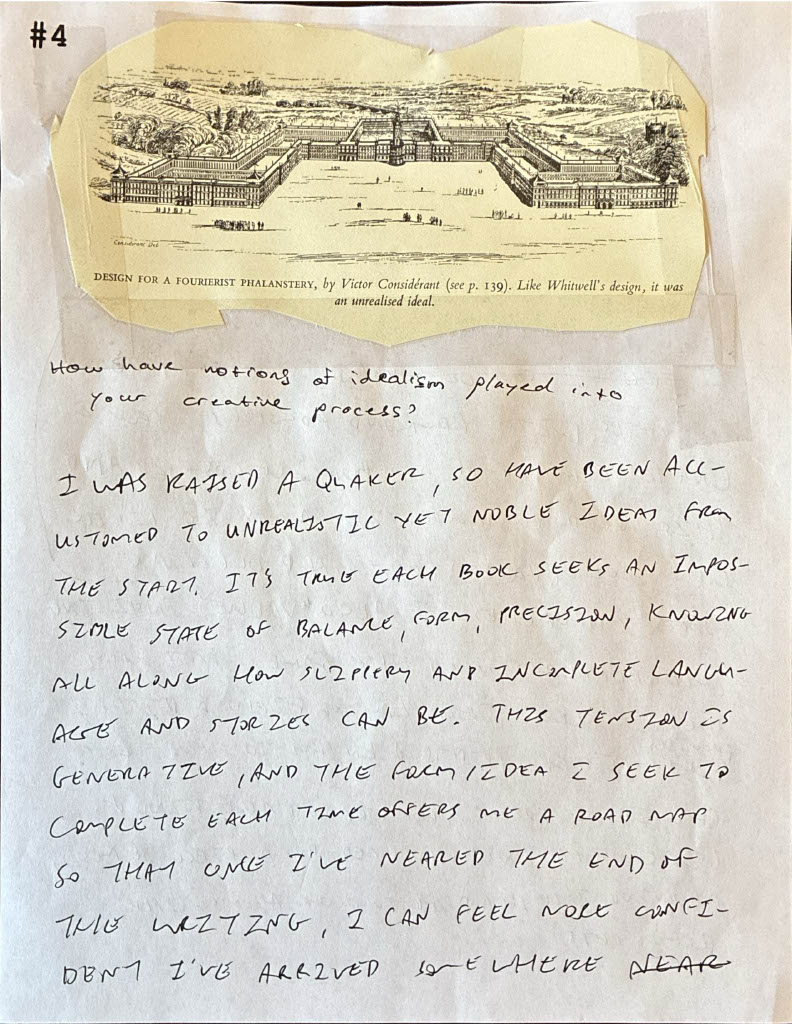 #4
Considérant Del
DESIGN FOR A FOURIERIST PHALANSTERY, by Victor Considérant (see p. 139). Like Whitwell's design, it was
an unrealised ideal.
How have notions of idealism played into
your creative process?
I WAS RAISED A QUAKER, SO HAVE BEEN ACC-
USTOMED TO UNREALISTIC YET NOBLE IDEAS FROM
THE START. IT'S TRUE EACH BOOK SEEKS AN IMPOS-
SIBLE STATE OF BALANCE, FORM, PRECISION, KNOWING
ALL ALONG HOW SLIPPERY AND INCOMPLETE LANGU-
AGE AND STORIES CAN BE. THIS TENSION IS
GENERATIVE, AND THE FORM/IDEA I SEEK TO
COMPLETE EACH TIME OFFERS ME A ROAD MAP
SO THAT ONCE I'VE NEARED THE END OF
THE WRITING, I CAN FEEL MORE CONFI-
DENT I'VE ARRIVED SOMEWHERE NEAR